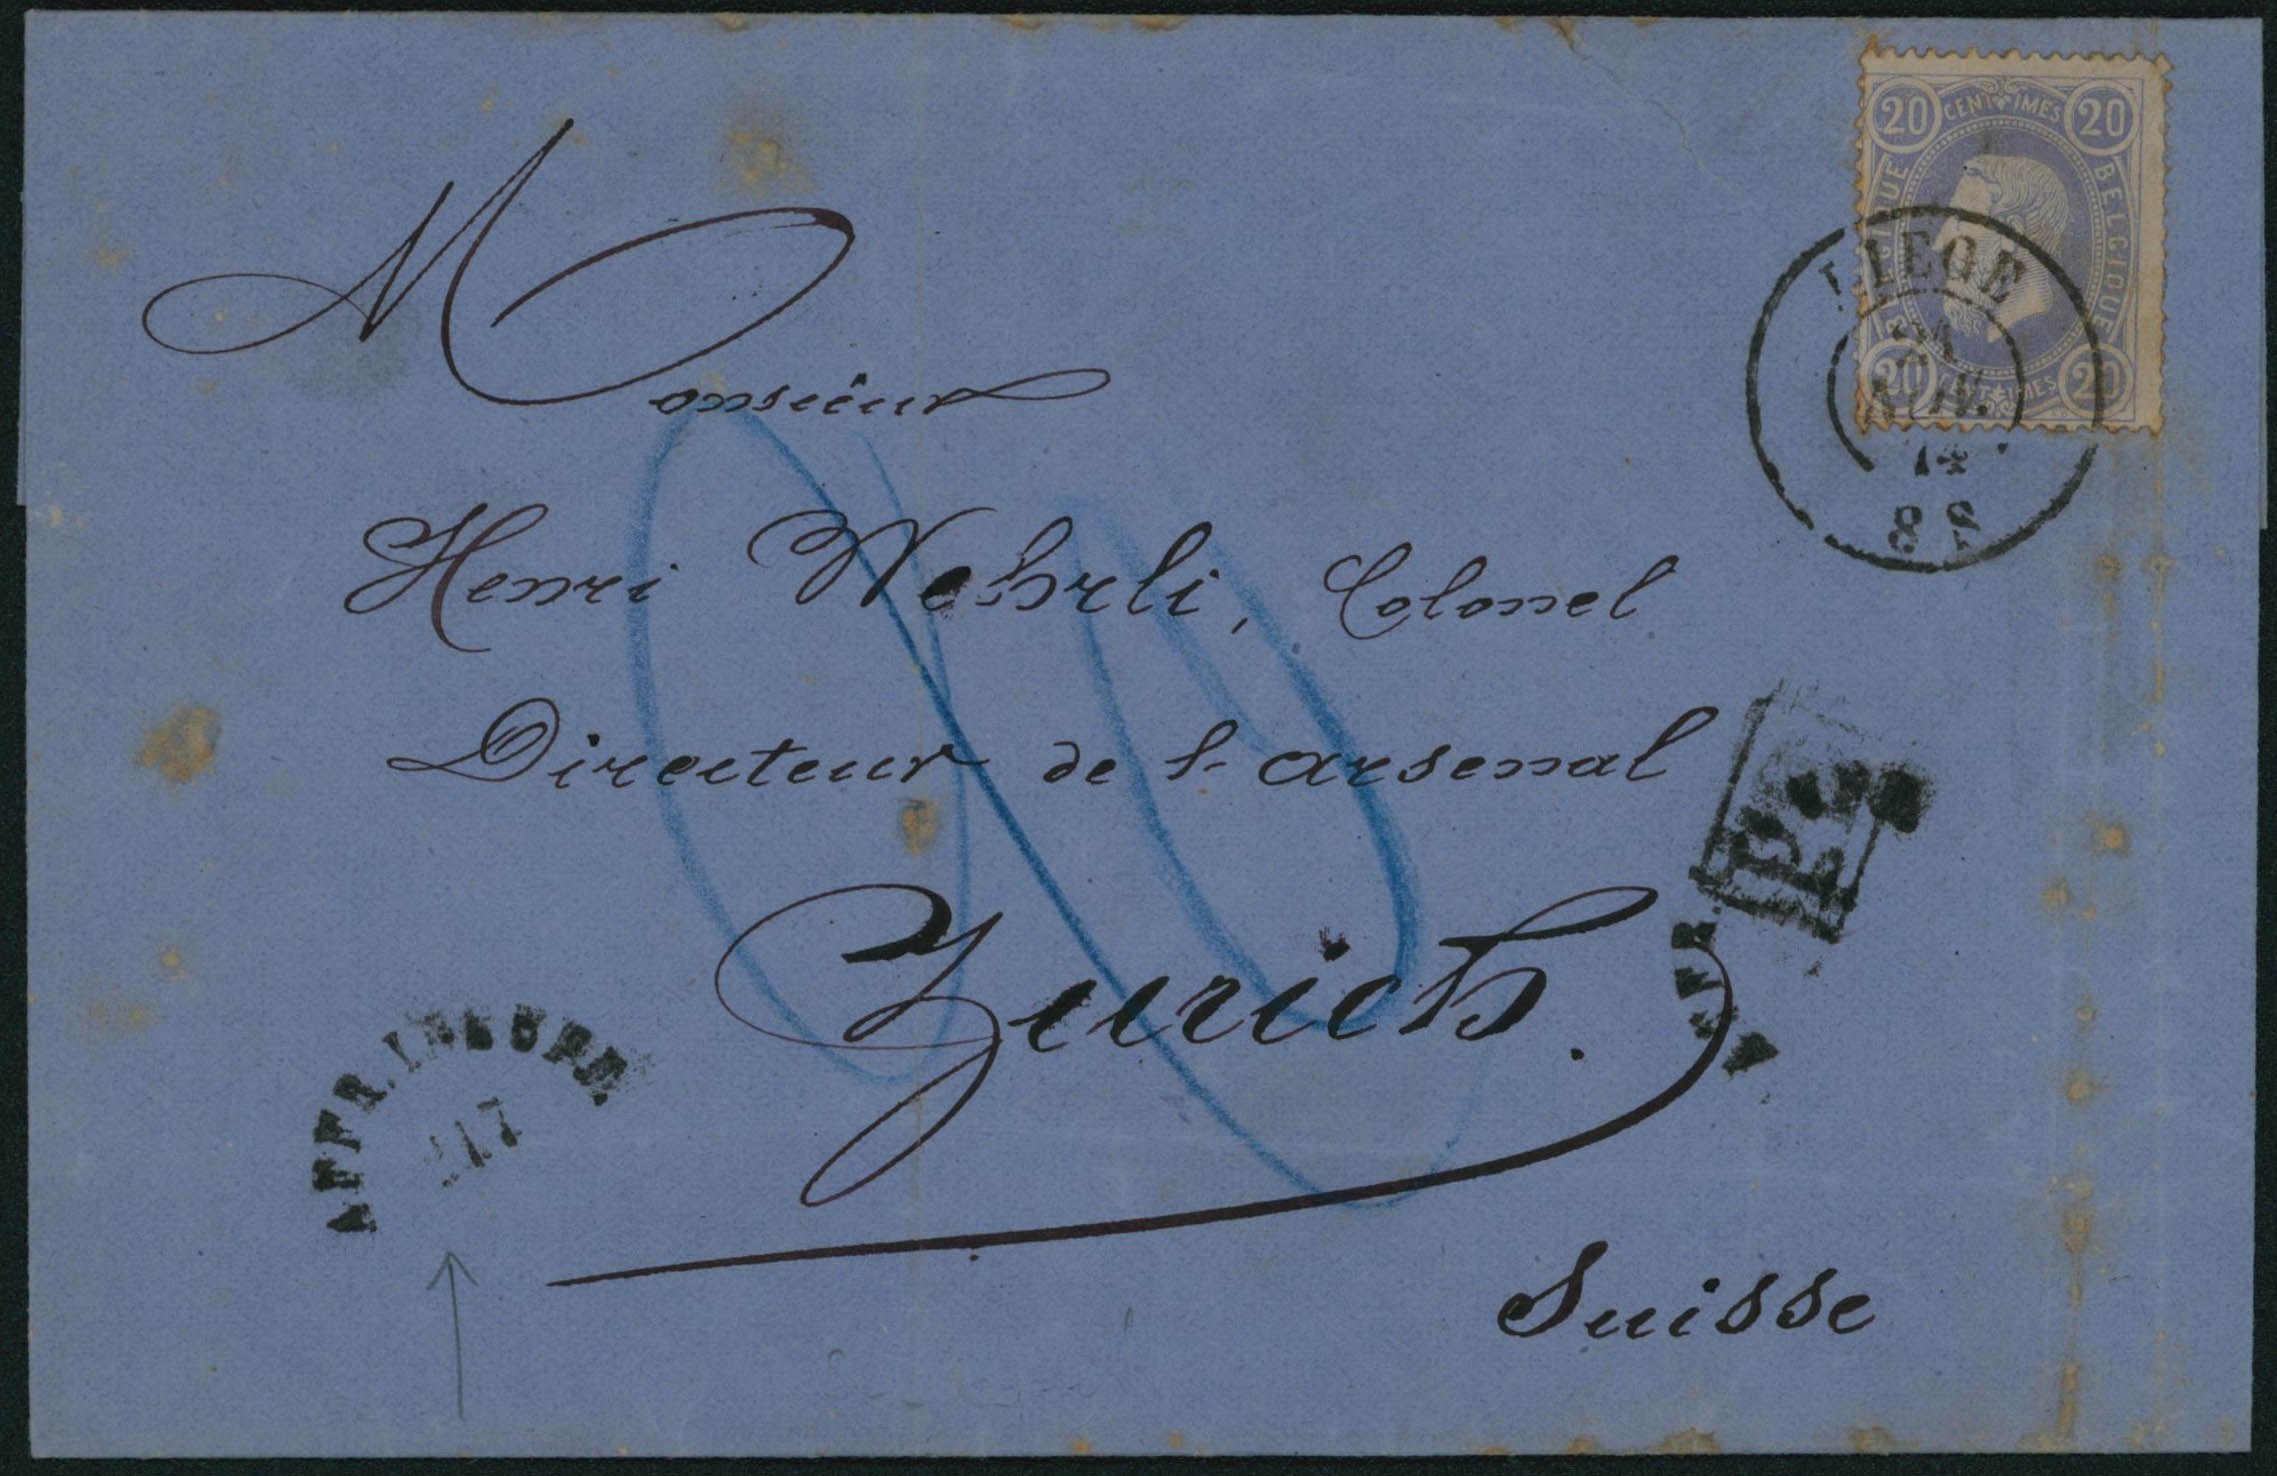 20 CENTIMES 20
BELGIQUE
BELGIQUE
20 CENTIMES 20
LIEGE
NOV.
74
8 S
Monsieur
Henri Wehrli, Colonel
Directeur de l'arsenal
Zurich.
Suisse
AFFR. INSUFF.